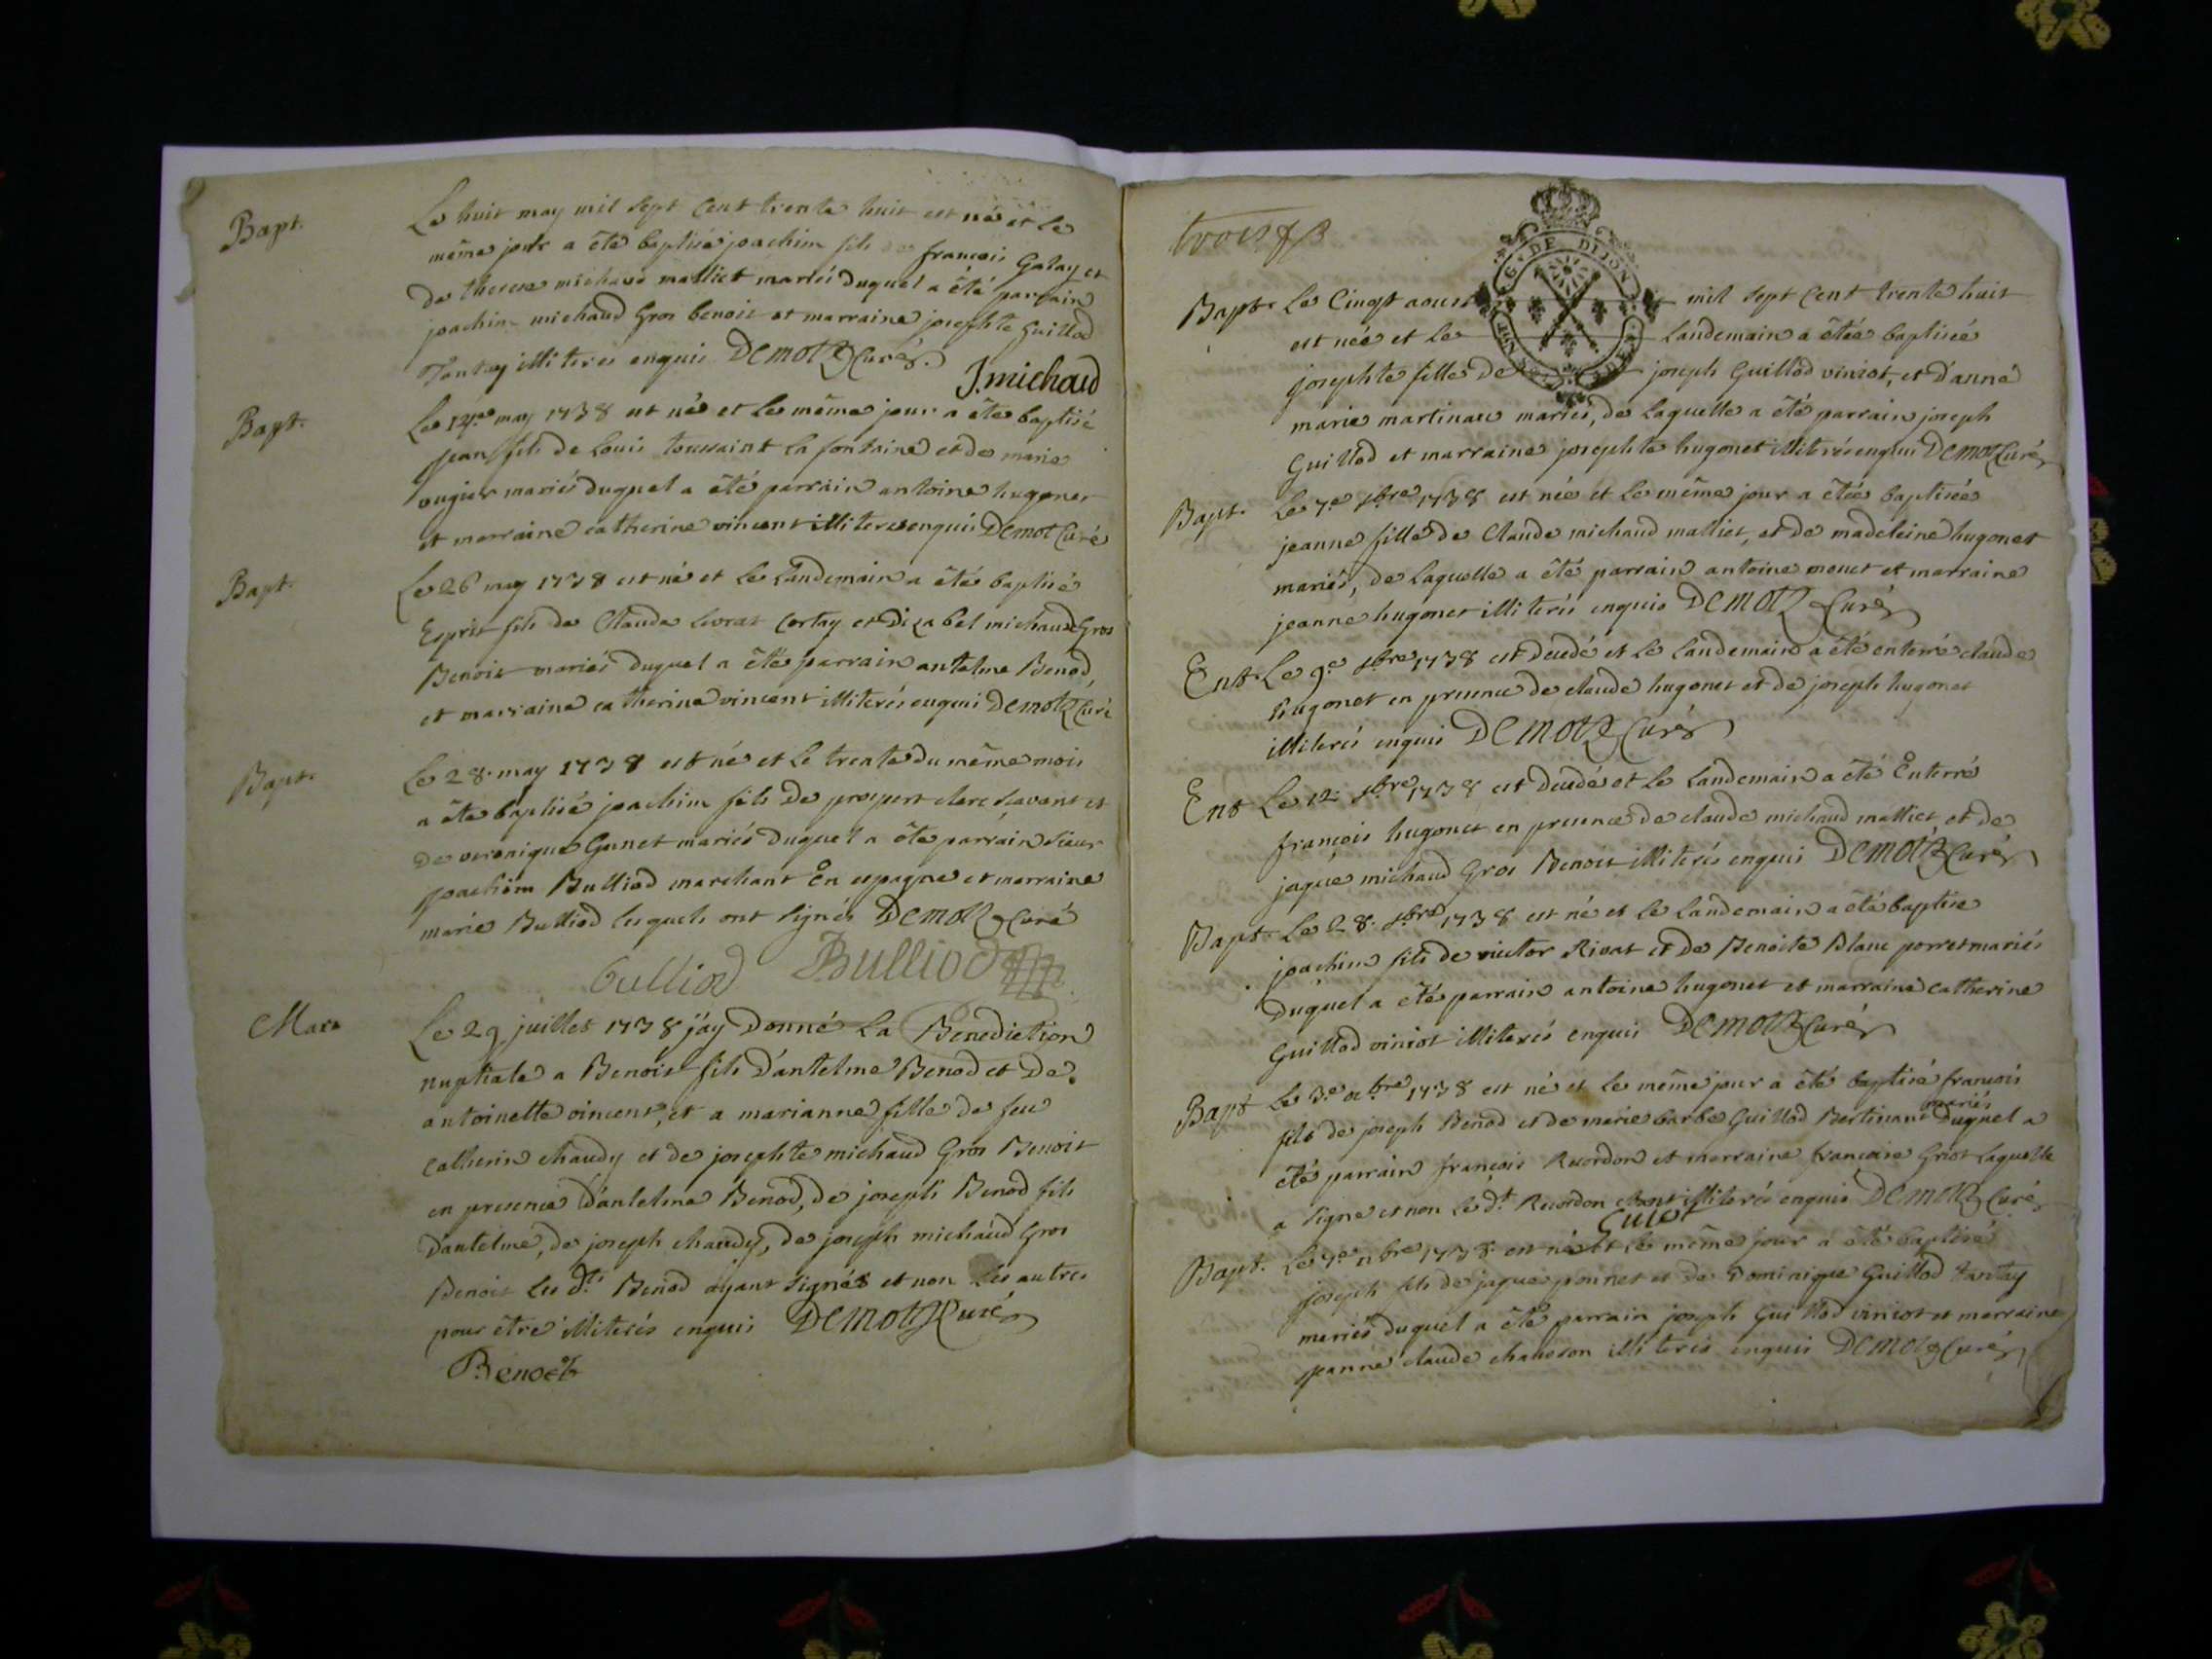 Bapt.
Le huit may mil sept Cent trente huit est né et le
même jour a été baptisé joachim fils de francois Galay et
de therese michaud malliet mariés duquel a été parrain
joachin michaud Gros benoit et marraine josephte Guillod
Tantay illiterés enquis Demotz Curé.
J. michaud
Bapt.
Le 12e may 1738 est né et le même jour a été baptisé
jean fils de Louis toussaint La fontaine et de marie
ougier mariés duquel a été parrain antoine hugonet
et marraine catherine vincent illiterés enquis Demotz Curé
Bapt.
Le 26 may 1738 est né et le Landemain a été baptisé
Esprit fils de Claude Livrat Cortay et Dizabel michaud Gros
Benoit mariés duquel a été parrain antelme Benod,
et marraine catherine vincent illiterés enquis Demotz Curé
Bapt.
Le 28. may 1738 est né et Le trente du même mois
a été baptisé joachim fils De prospert clerc Savant et
De veronique Gunet mariés Duquel a été parrain Sieur
joachim Bulliod marchant En espagne et marraine
marie Bulliod lesquels ont Signés Demotz Curé
bulliod Bulliod
Mar.
Le 29 juillet 1738 j'ay Donné La Benediction
nuptiale a Benoit fils D'antelme Benod et De
antoinette vincent, et a marianne fille de feu
catherin chaudy et de josephte michaud Gros Benoit
en presence D'antelme Benod, de joseph Benod fils
D'antelme, de joseph chaudy, de joseph michaud Gros
Benoit Les dts Benod ayant Signés et non Les autres
pour être illiterés enquis Demotz Curé
Benoct
trois
G. DE DIJON
Bapt. Le Cinqt aoust mil Sept Cent trente huit
est née et Le Landemain a étée baptisée
josephte fille De joseph Guillod viniot, et d'anne
marie martinau mariés, de Laquelle a été parrain joseph
Guillod et marraine josephte hugonet illiterés enquis Demotz Curé
Bapt. Le 7e 7bre 1738 est née et Le même jour a étée baptisée
jeanne fille de Claude michaud malliet, et de madeleine hugonet
mariés, de Laquelle a été parrain antoine monet et marraine
jeanne hugonet illiterés enquis Demotz Curé
Ent Le 9e 7bre 1738 est decedé et Le Landemain a été enterré claude
hugonet en presence de claude hugonet et de joseph hugonet
illiterés enquis Demotz Curé
Ent Le 12. 7bre 1738 est decedé et Le Landemain a été Enterré
françois hugonet en presence de claude michaud malliet et de
jaque michaud Gros Benoit illiterés enquis Demotz Curé
Bapt Le 28. 7bre 1738 est né et Le Landemain a été baptisé
joachim fils de victor Rivat et De Benoite Blanc porret mariés
Duquel a été parrain antoine hugonet et marraine catherine
Guillod viniot illiterés enquis Demotz Curé
Bapt Le 3e octbre 1738 est né et Le même jour a été baptisé francois
mariés
fils de joseph Benod et de marie barbe Guillod Bertinant Duquel a
été parrain françois Recordon et marraine francoise Griot Laquelle
a signé et non Le dt Recordon illiterés enquis Demotz Curé
Bapt. Le 7e nbre 1738 est né et Le même jour a été baptisé
joseph fils de jaque poinet et de Dominique Guillod Tantay
mariés duquel a été parrain joseph Guillod viniot et marraine
jeanne claude chanson illiterés enquis Demotz Curé